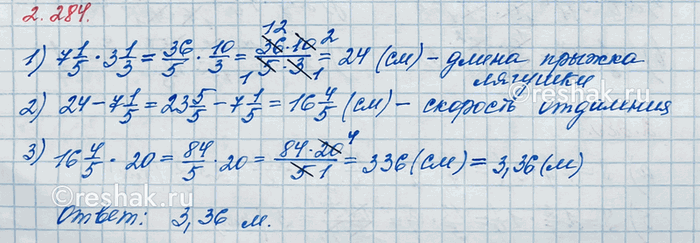 2.284.
1) 7 1/5 · 3 1/3 = 36/5 · 10/3 = (36 12 · 10 2)/(5 1 · 3 1) = 24 (см) – длина прыжка
лягушки
2) 24 – 7 1/5 = 23 5/5 – 7 1/5 = 16 4/5 (см) – скорость отдаления
3) 16 4/5 · 20 = 84/5 · 20 = (84 · 20 4)/(5 1) = 336 (см) = 3,36 (м)
©reshak.ru
Ответ: 3,36 м.